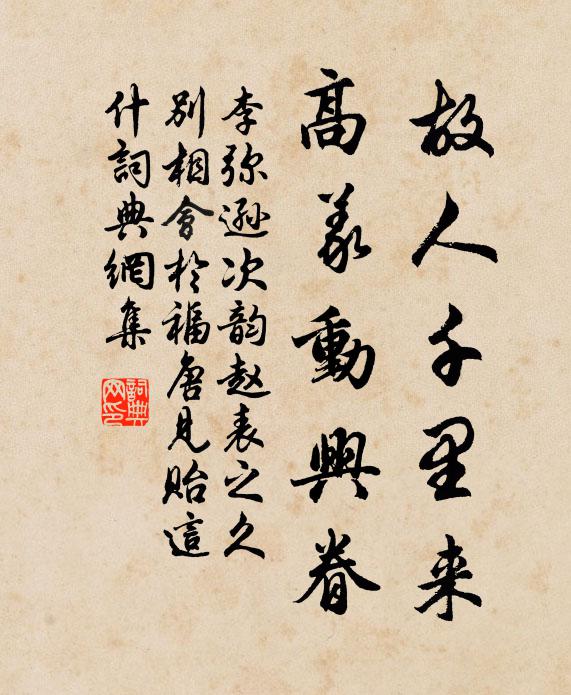 故人千里来
高義動興眷
李弥遜次韵赵表之久
别相會於福唐見貽這
什詞典網集
詞典
网印